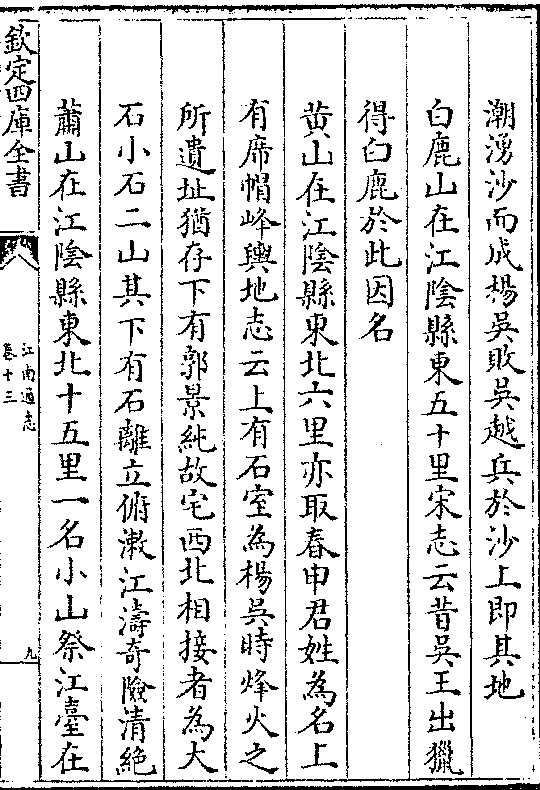 潮湧沙而成楊吳敗吳越兵於沙上即其地
白鹿山在江陰縣東五十里宋志云昔吳王出獵
得白鹿於此因名
黄山在江陰縣東北六里亦取春申君姓為名上
有席帽峰輿地志云上有石室為楊吳時烽火之
所遺址猶存下有郭景純故宅西北相接者為大
石小石二山其下有石離立俯漱江濤奇險清絶
蕭山在江陰縣東北十五里一名小山祭江臺在
欽定四庫全書
江南通志
卷十三
九